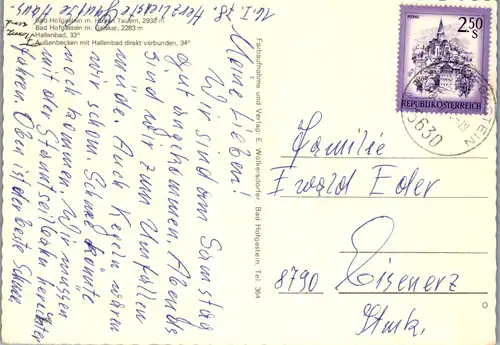 Bad Hofgastein m. Hohen Tauern, 2938 m
Bad Hofgastein m. Gamskar, 2283 m
Hallenbad, 33°
Außenbecken mit Hallenbad direkt verbunden, 34°
16. I. 78
Meine Lieben!
Wir sind am Samstag
gut angekommen. Abends
sind wir zum Umfallen
müde. Auch Kerin waren
wir schon. Schnee könnte
noch kommen. Wir müssen
mit der Standseilbahn herunter
fahren. Oben ist der beste Schnee
Herzlichste Grüße
Farbaufnahme und Verlag E. Wolkersdorfer, Bad Hofgastein, Tel. 364
2.50
S
MURAU
REPUBLIK ÖSTERREICH
5630
Familie
Ewald Eder
8790 Eisenerz
Stmk.